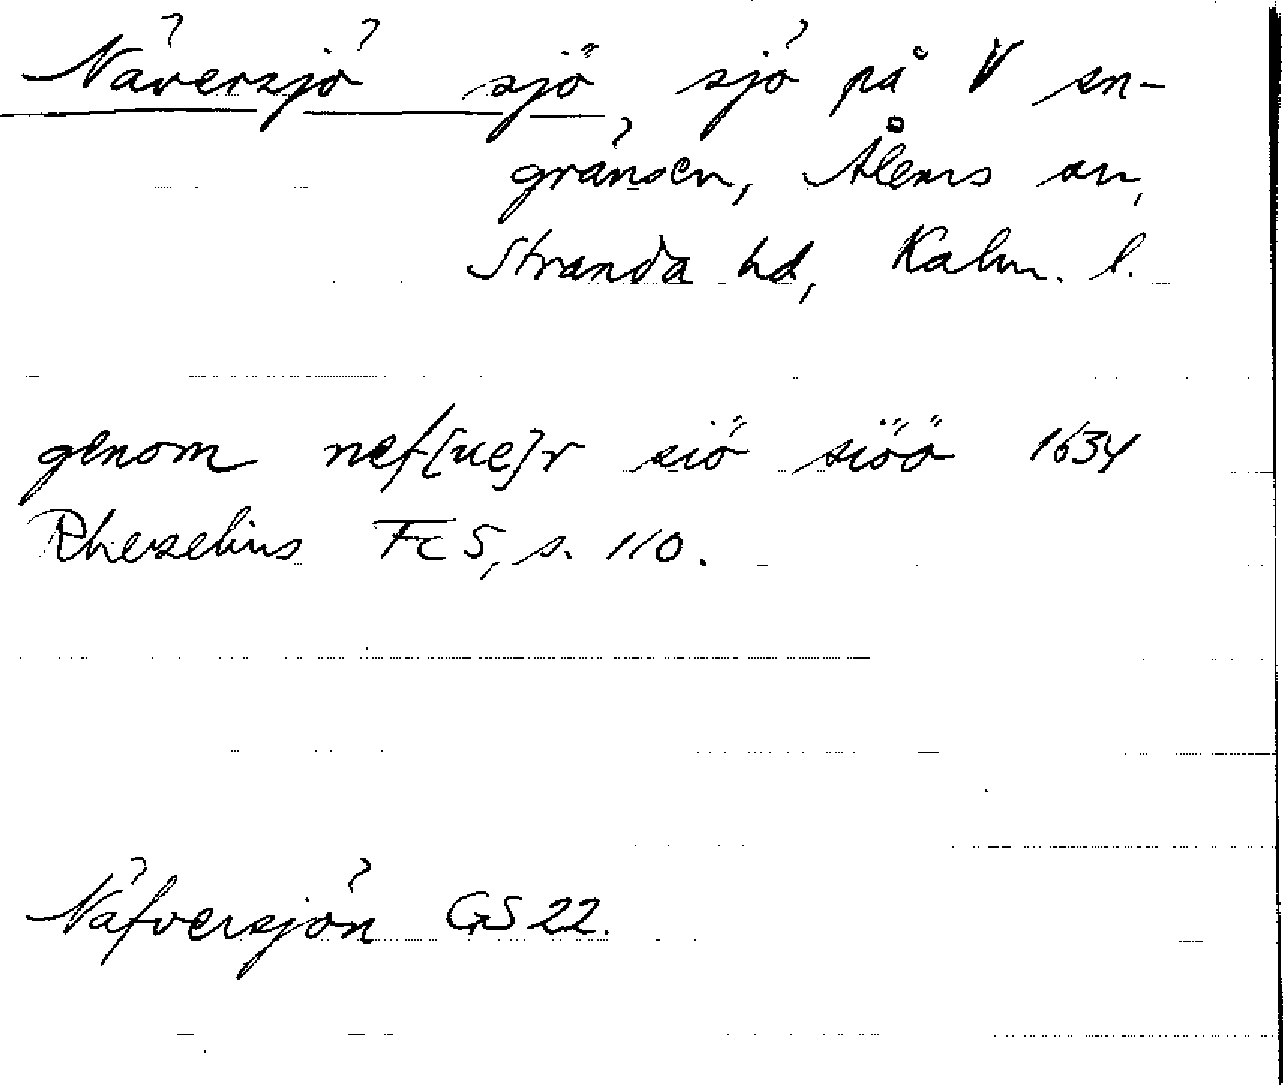 Näversjö sjö, sjö på V sn-
gränsen, Ålems sn,
Stranda hd, Kalm. l.
genom nef[ue]r siö siöö 1634
Rhezelius Fc5, s. 110.
Näfversjön GS 22.